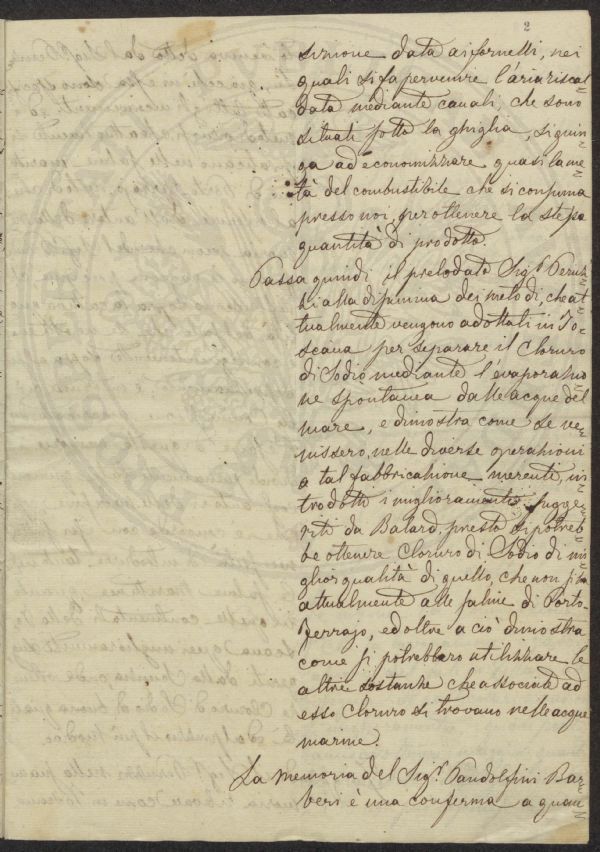 2
sizione data ai fornelli, nei
quali si fa pervenire l'aria riscal=
data mediante canali, che sono
situati sotto la ghiglia, si giun=
ga ad economizzare quasi la me=
tà del combustibile che si consuma
presso noi, per ottenere la stessa
quantità di prodotto.
Passa quindi il prelodato Sigr. Peruz=
zi alla disamina dei metodi, che at=
tualmente vengono adottati in To=
scana per separare il Cloruro
di Sodio mediante l'evaporazio=
ne spontanea dalle acque del
mare, e dimostra come se ve=
nissero, nelle diverse operazioni
a tal fabbricazione merenti, in=
trodotti i miglioramenti sugge=
riti da Balard, presto si potreb=
be ottenere Cloruro di Sodio di mi=
glior qualità di quello, che non si ha
attualmente alle saline di Porto-
Ferrajo, ed oltre a ciò dimostra
come si potrebbero utilizzare le
altre sostanze che associate ad
esso Cloruro si trovano nelle acque
marine.
La Memoria del Sigr. Pandolfini Bar=
beri è una conferma a quan=